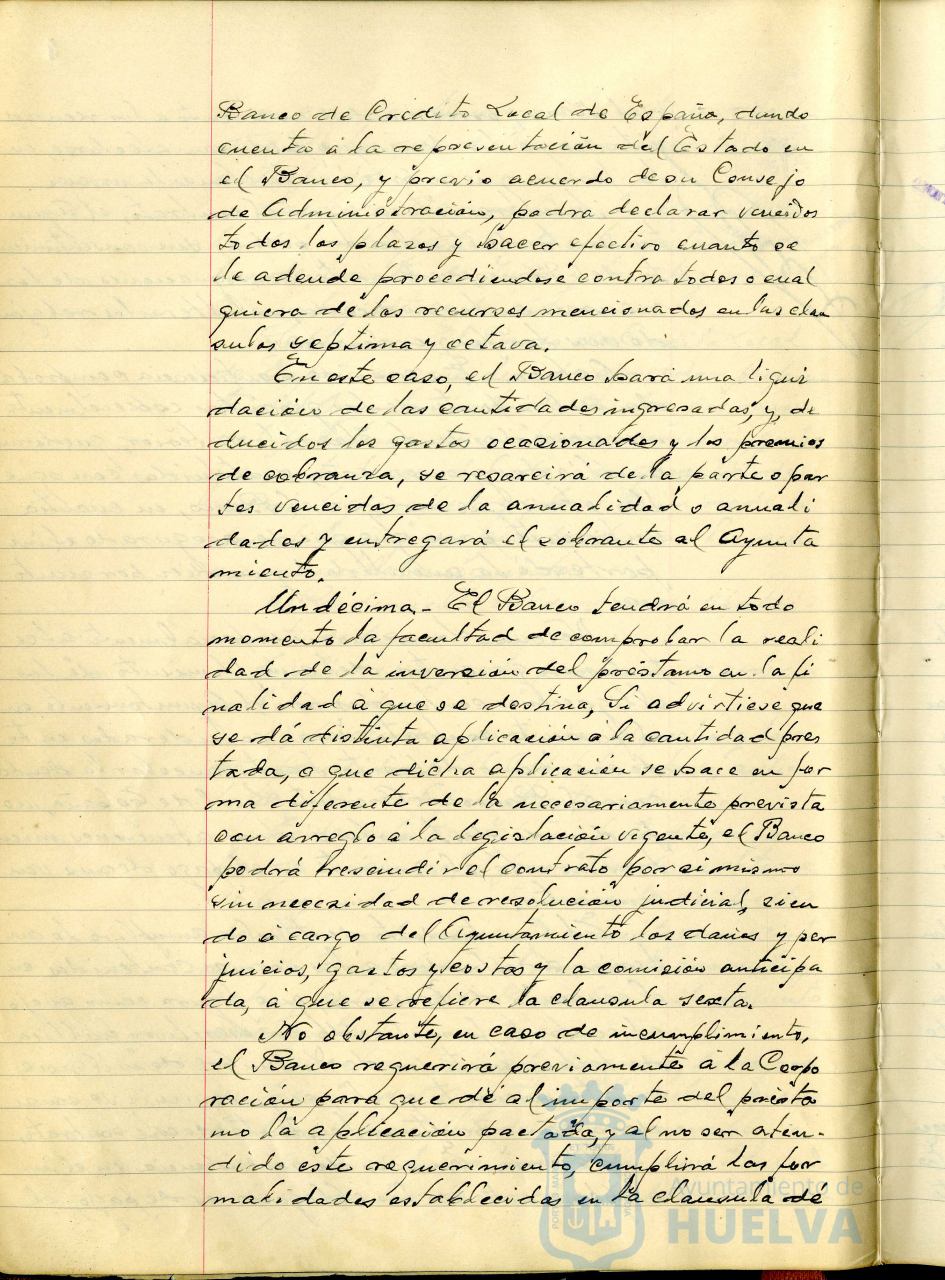 Banco de Crédito Local de España, dando
cuenta á la representación del Estado en
el Banco, y previo acuerdo de su Consejo
de Administración, podra declarar vencidos
todos los plazos y hacer efectivo cuanto se
le adeude procediendose contra todos o cual
quiera de los recursos mencionados en las clau
sulas septima y octava.
En este caso, el Banco hará una liqui
dación de las cantidades ingresadas, y, de
ducidos los gastos ocasionados y los premios
de cobranza, se resarcirá de la parte o par
tes vencidas de la anualidad o anuali
dades y entregará el sobrante al Ayunta
miento.
Undécima.- El Banco tendrá en todo
momento la facultad de comprobar la reali
dad de la inversión del préstamo en la fi
nalidad á que se destina, Si advirtiese que
se dá distinta aplicación á la cantidad pres
tada, o que dicha aplicación se hace en for
ma diferente de la necesariamente prevista
con arreglo á la legislación vigente, el Banco
podrá rescindir el contrato por si mismo
sin necesidad de resolución judicial, sien
do á cargo del Ayuntamiento los daños y per
juicios, gastos y costas y la comisión anticipa
da, á que se refiere la clausula sexta.
No obstante, en caso de incumplimiento,
el Banco requerirá previamente á la Corpo
ración para que dé al importe del présta
mo la aplicación pactada, y al no ser aten-
dido éste requerimiento, cumplirá las for
malidades establecidas en la clausula dé
Ayuntamiento de
HUELVA